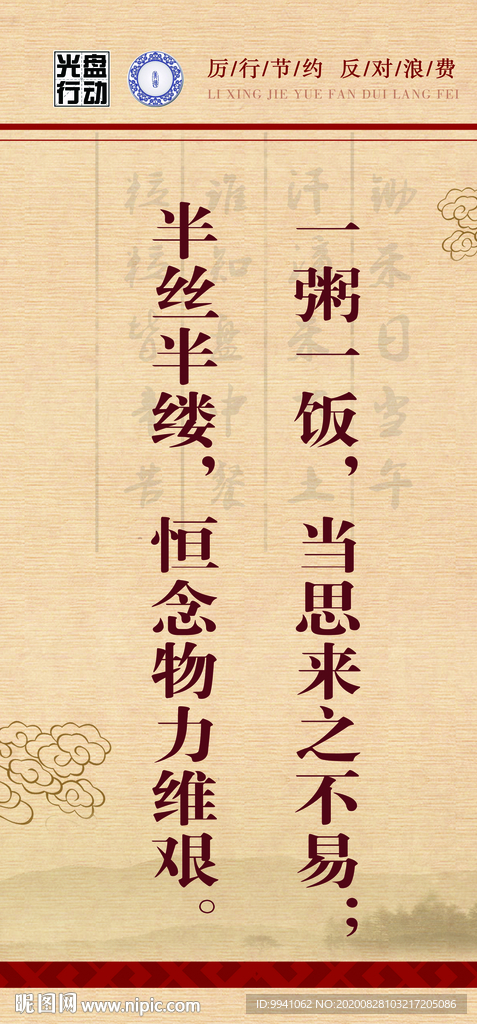 光盘
行动
厉/行/节/约 反/对/浪/费
LI XING JIE YUE FAN DUI LANG FEI
一粥一饭，当思来之不易；
半丝半缕，恒念物力维艰。
锄禾日当午
汗滴禾下土
谁知盘中餐
粒粒皆辛苦
昵图网 www.nipic.com
ID:9941062 NO:20200828103217205086